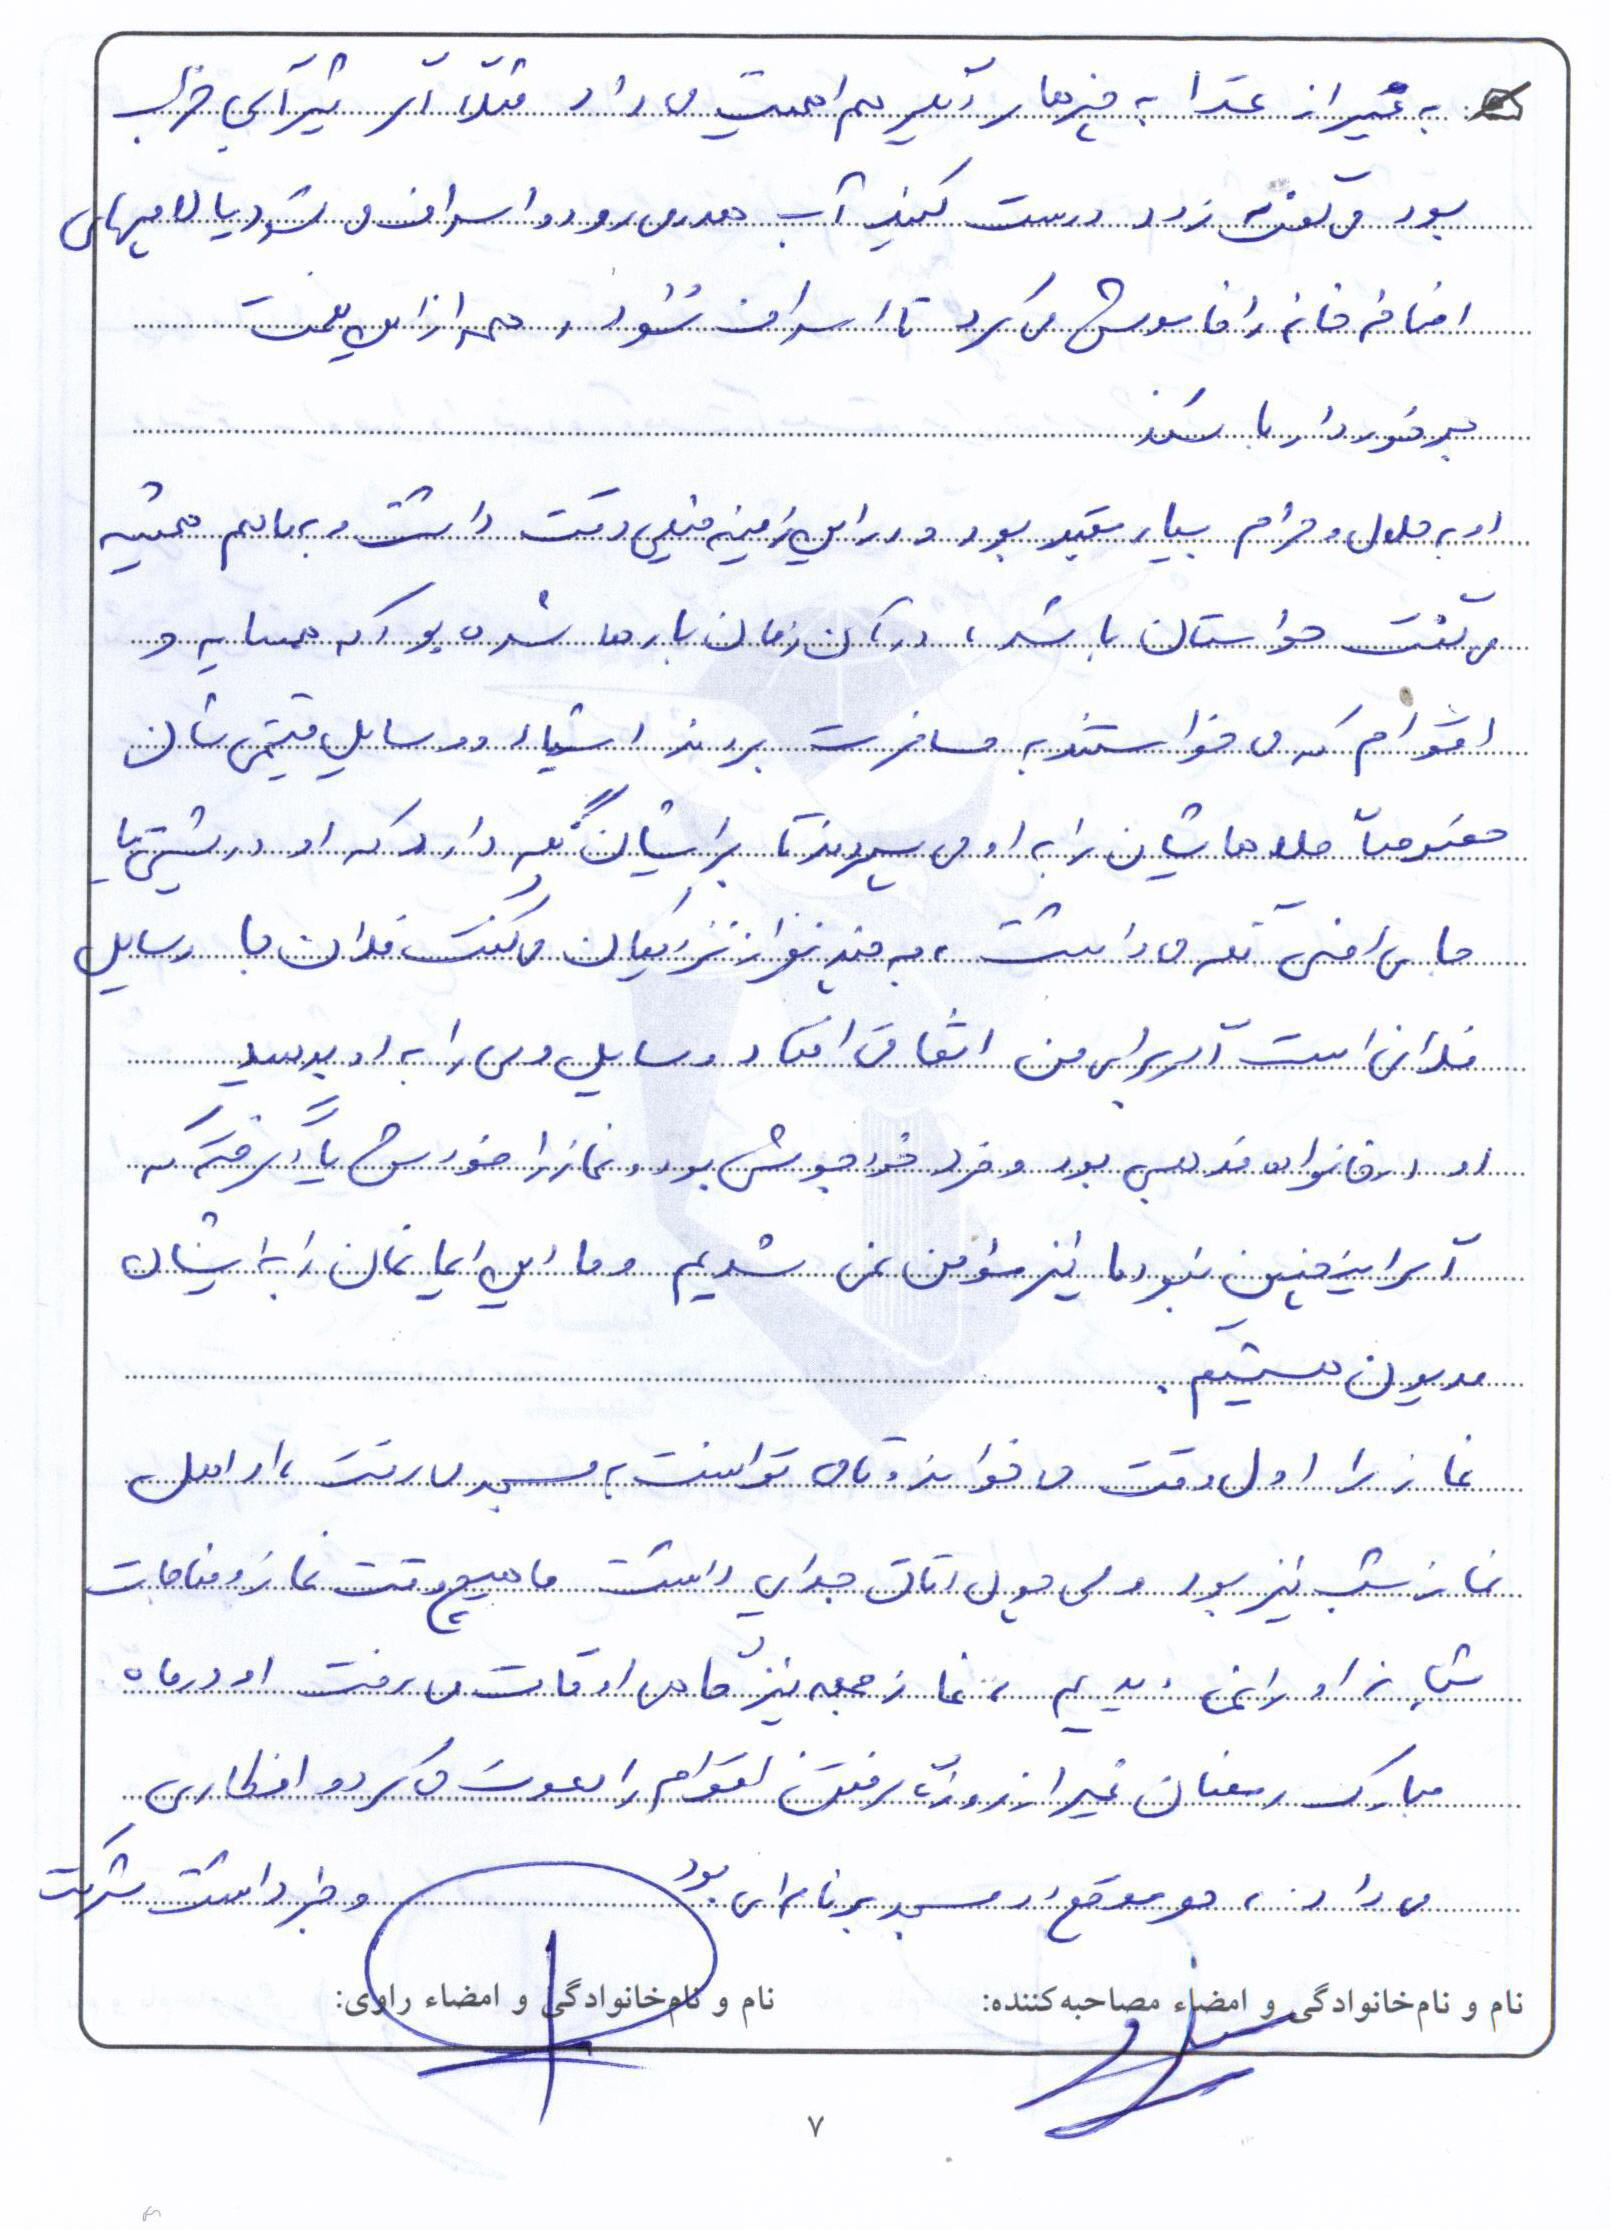 به غیر از غذا به چیزهای دیگر هم اهمیت می داد مثلاً اگر شیرآبی خراب
بود می گفت زود درست کنید آب هدر می رود و اسراف می شود یا لامپهای
اضافه خانه را خاموش می کرد تا اسراف نشود و همه از این نعمت
برخوردار باشند
او به حلال و حرام بسیار مقید بود و در این زمینه خیلی دقت داشت و به ما هم همیشه
می گفت حواستان باشد، در آن زمان بارها شده بود که همسایه و
اقوام که می خواستند به مسافرت بروند اشیاء و وسایل قیمتی شان
خصوصاً طلاهایشان را به او می سپردند تا برایشان نگه دارد که او در پشتی یا
جای امنی نگه می داشت، به چند نفر از نزدیکان می گفت فلان جا وسایل
فلانی است اگر برای من اتفاقی افتاد وسایل وی را به او بدهید
او در خانواده مذهبی بود و خود خودجوش بود و نماز را خودش یاد گرفته که
اگر اینچنین نبود ما نیز مؤمن نمی شدیم و ما این ایمانمان را به ایشان
مدیون هستیم.
نماز را اول وقت می خواند و تا می توانست به مسجد می رفت، او اهل
نماز شب نیز بود ولی چون اتاق جدایی داشت ما هیچ وقت نماز و مناجات
شبانه او را نمی دیدیم، نماز جمعه نیز گاهی اوقات می رفت او در ماه
مبارک رمضان غیر از روزه گرفتن اقوام را دعوت می کرد و افطاری
می داد، هر موقع در مسجد برنامه ای بود و خبر داشت شرکت
نام و نام‌خانوادگی و امضاء مصاحبه‌کننده: نام و نام‌خانوادگی و امضاء راوی:
۷